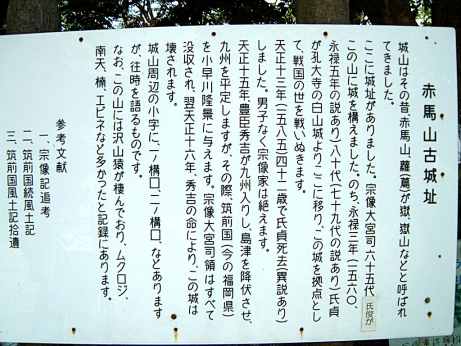 赤馬山古城址
城山はその昔、赤馬山、蘿(蔦)が嶽、嶽山などと呼ばれ
てきました。
ここに城址がありました。宗像大宮司六十五代氏俊が
この山に城を構えました。のち、永禄三年(一五六〇、
永禄五年の説あり)八十代(七十九代の説あり)氏貞
が孔大寺の白山城よりここに移り、この城を拠点とし
て、戦国の世を戦いぬきます。
天正十三年(一五八五)四十二歳で氏貞死去(異説あり)
しました。男子なく宗像家は絶えます。
天正十五年、豊臣秀吉が九州入りし、島津を降伏させ、
九州を平定しますが、その際、筑前国(今の福岡県)
を小早川隆景に与えます。宗像大宮司領はすべて
没収され、翌天正十六年、秀吉の命により、この城は
壊されます。
城山周辺の小字に、一ノ構口、二ノ構口、などあります
が、往時を語るものです。
なお、この山には沢山猿が棲んでおり、ムクロジ、
南天、楠、エビネなど多かったと記録にあります。
参考文献
一、宗像記追考
二、筑前国続風土記
三、筑前国風土記拾遺